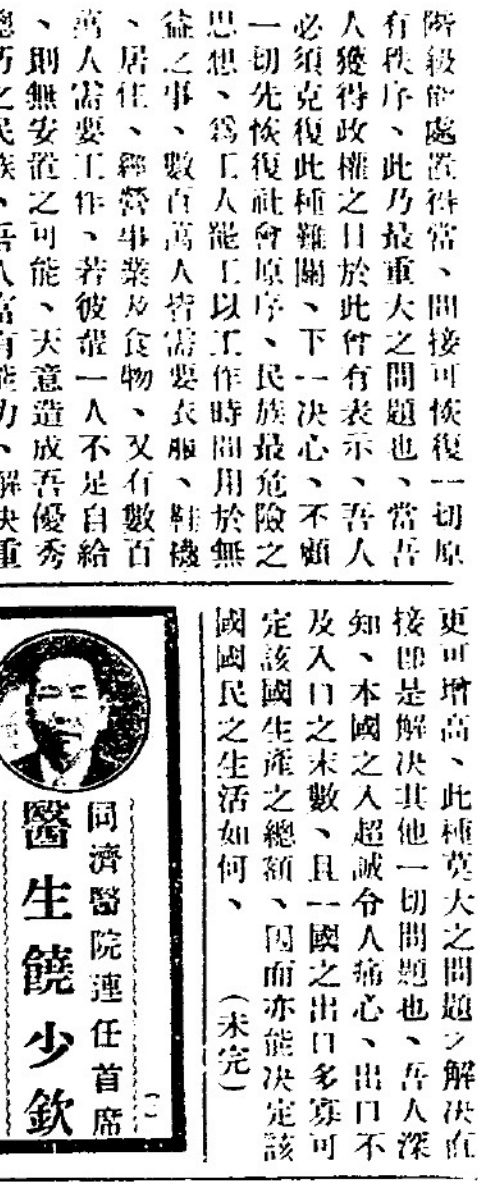 階級能處置得當、間接可恢復一切原
有秩序、此乃最重大之問題也、當吾
人獲得政權之日於此曾有表示、吾人
必須克復此種難關、下一决心、不顧
一切先恢復社會原序、民族最危險之
思想、爲工人罷工以工作時間用於無
益之事、數百萬人皆需要衣服、鞋襪
、居住、經營事業及食物、又有數百
萬人需要工作、若彼輩一人不足自給
、則無安置之可能、天意造成吾優秀
之民族、吾人當有能力、解決重
更可增高、此種莫大之問題之解決直
接即是解决其他一切問題也、吾人深
知、本國之入超誠令人痛心、出口不
及入口之末數、且一國之出口多寡可
定該國生產之總額、因而亦能决定該
國國民之生活如何、（未完）
同濟醫院連任首席
醫生饒少欽